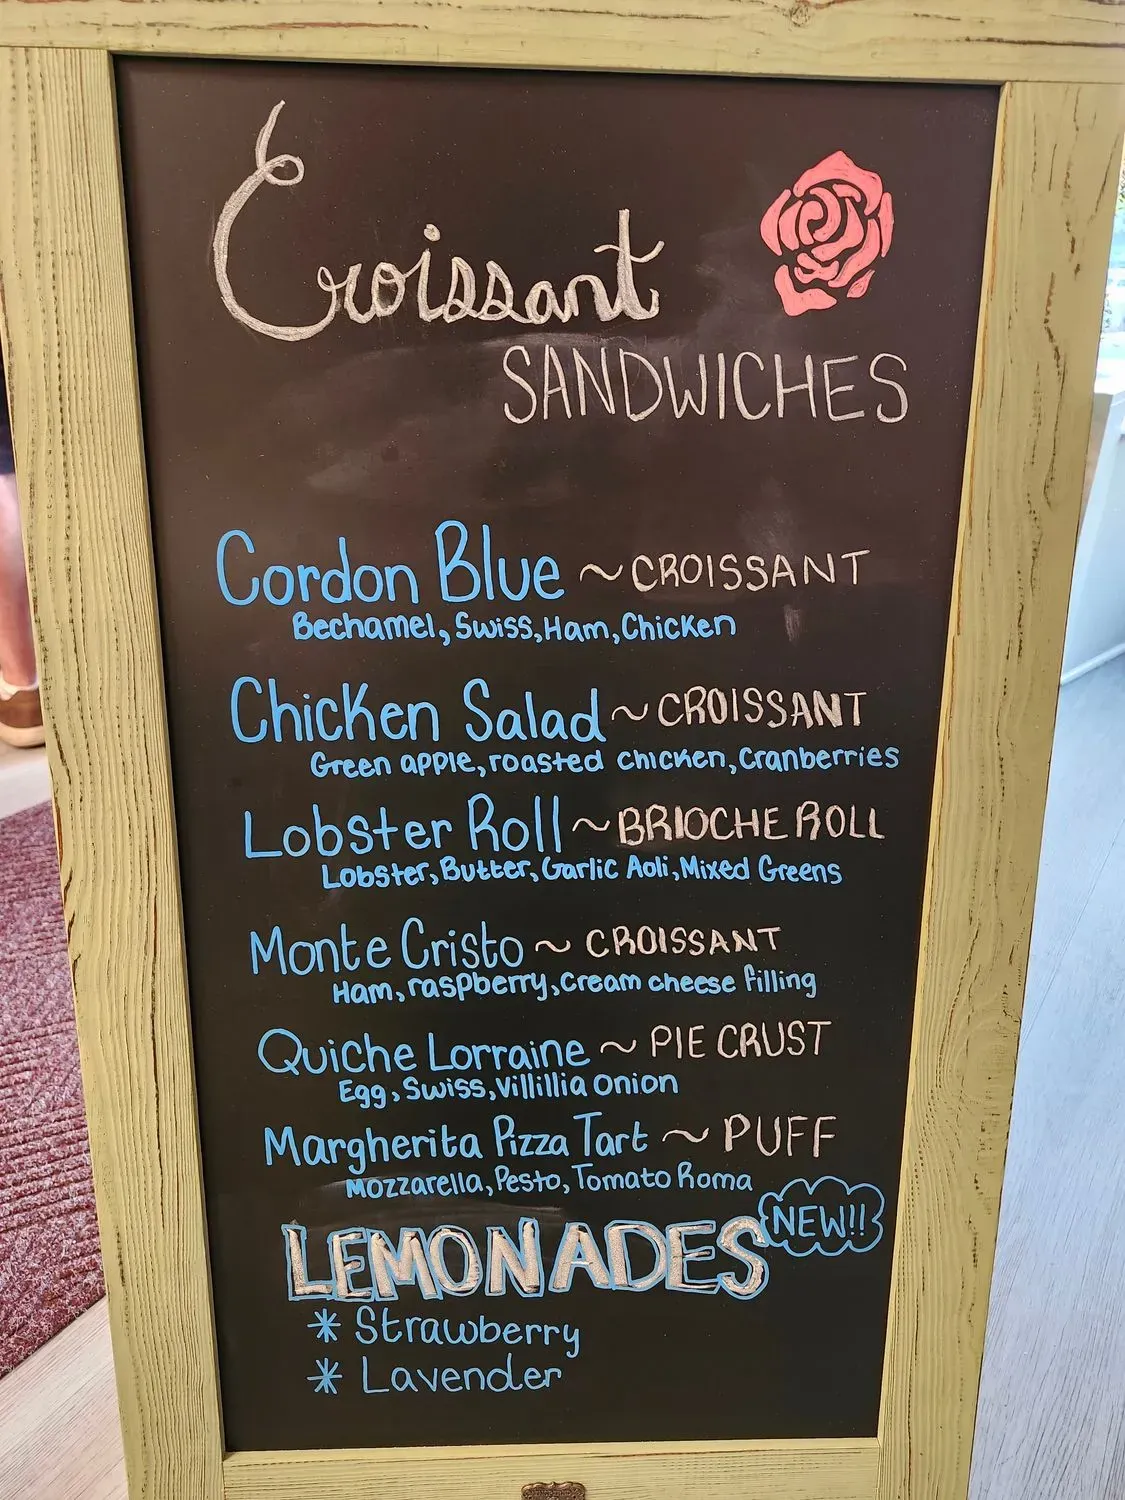 Croissant
SANDWICHES
Cordon Blue ~ CROISSANT
Bechamel, Swiss, Ham, Chicken
Chicken Salad ~ CROISSANT
Green apple, roasted chicken, Cranberries
Lobster Roll ~ BRIOCHE ROLL
Lobster, Butter, Garlic Aoli, Mixed Greens
Monte Cristo ~ CROISSANT
Ham, raspberry, Cream cheese filling
Quiche Lorraine ~ PIE CRUST
Egg, Swiss, Villillia onion
Margherita Pizza Tart ~ PUFF
Mozzarella, Pesto, Tomato Roma
LEMONADES NEW!!
* Strawberry
* Lavender